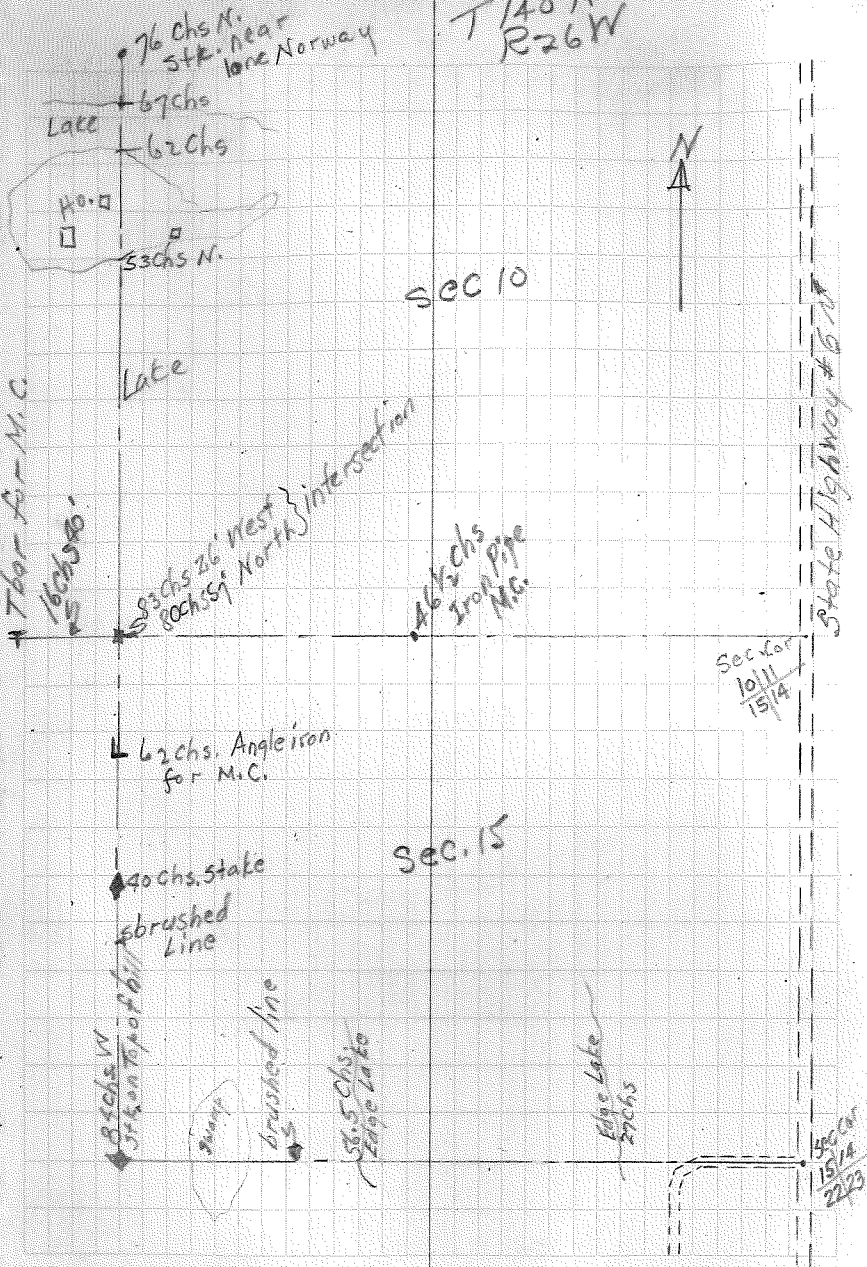 T 140 N
R26W
76 Chs N.
stk. near
lone Norway
67 Chs
Lake
62 Chs
Ho.
53 Chs N.
N
Sec 10
Lake
State Highway #6 N
T bar for M.C.
16 Chs 40
83 Chs 26' West } intersection
80 Chs 57' North
46 1/2 Chs
Iron Pipe
M.C.
Sec. Cor
10|11
15|14
62 Chs. Angle iron
for M.C.
Sec. 15
40 Chs. Stake
brushed
Line
84 Chs W
Stk on Top of hill
Swamp
brushed line
56.5 Chs.
Edge Lake
Edge Lake
27 Chs
Sec Cor
15|14
22|23